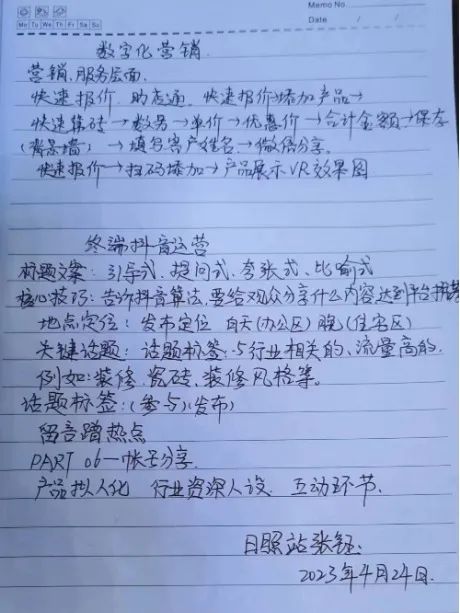 Memo No.
Mo Tu We Th Fr Sa Su
Date / /
数字化营销.
营销、服务层面.
快速报价 助店通 快速报价→添加产品→
快速算砖→数务→单价→优惠价→合计金额→保存
(背景墙)→填写客户姓名→微信分享.
快速报价→扫码添加→产品展示VR效果图
终端抖音运营
标题文案:引导式、提问式、夸张式、比喻式
核心技巧:告诉抖音算法,要给观众分享什么内容达到平台推荐
地点定位:发布定位 白天(办公区)晚(住宅区)
关键话题:话题标签:与行业相关的、流量高的.
例如:装修、瓷砖、装修风格等。
话题标签:(参与)(发布)
留言蹭热点
PART 06一帐号分享.
产品拟人化 行业资深人设. 互动环节.
日照站张钰.
2023年4月24日.